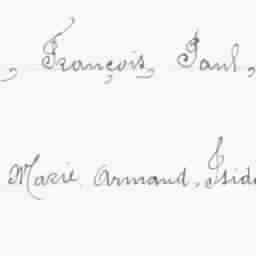 , François, Paul,
Marie Armand, Isid